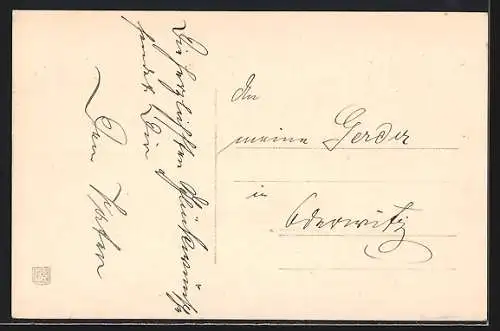 Die herzlichsten Glückwünsche
sendet Dein
An
meine Gerda
in
Oderwitz